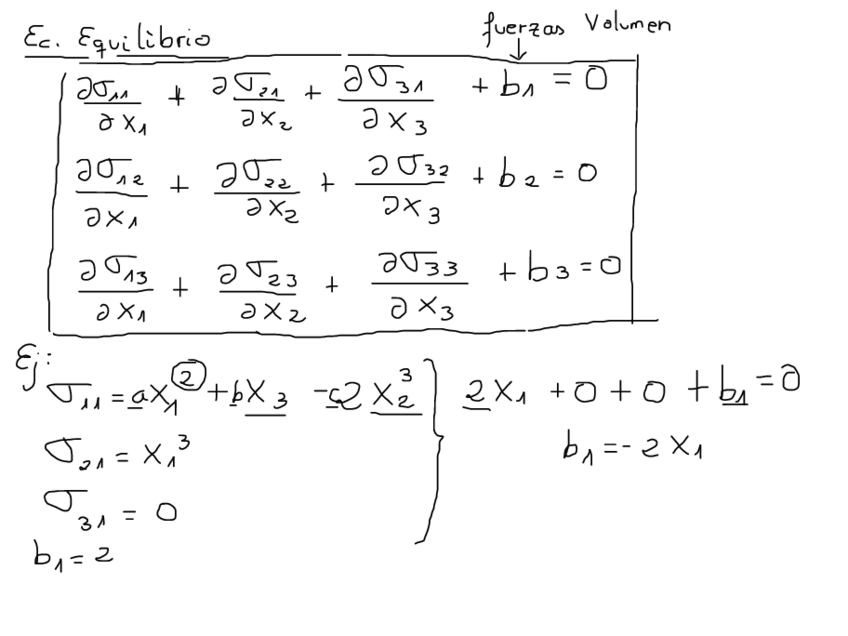 Ec. Equilibrio
fuerzas Volumen
↓
∂σ₁₁/∂x₁ + ∂σ₂₁/∂x₂ + ∂σ₃₁/∂x₃ + b₁ = 0
∂σ₁₂/∂x₁ + ∂σ₂₂/∂x₂ + ∂σ₃₂/∂x₃ + b₂ = 0
∂σ₁₃/∂x₁ + ∂σ₂₃/∂x₂ + ∂σ₃₃/∂x₃ + b₃ = 0
Ej:
σ₁₁ = ax₁² + bx₃ - c2x₂³ } 2x₁ + 0 + 0 + b₁ = 0
σ₂₁ = x₁³
b₁ = -2x₁
σ₃₁ = 0
b₁ = 2